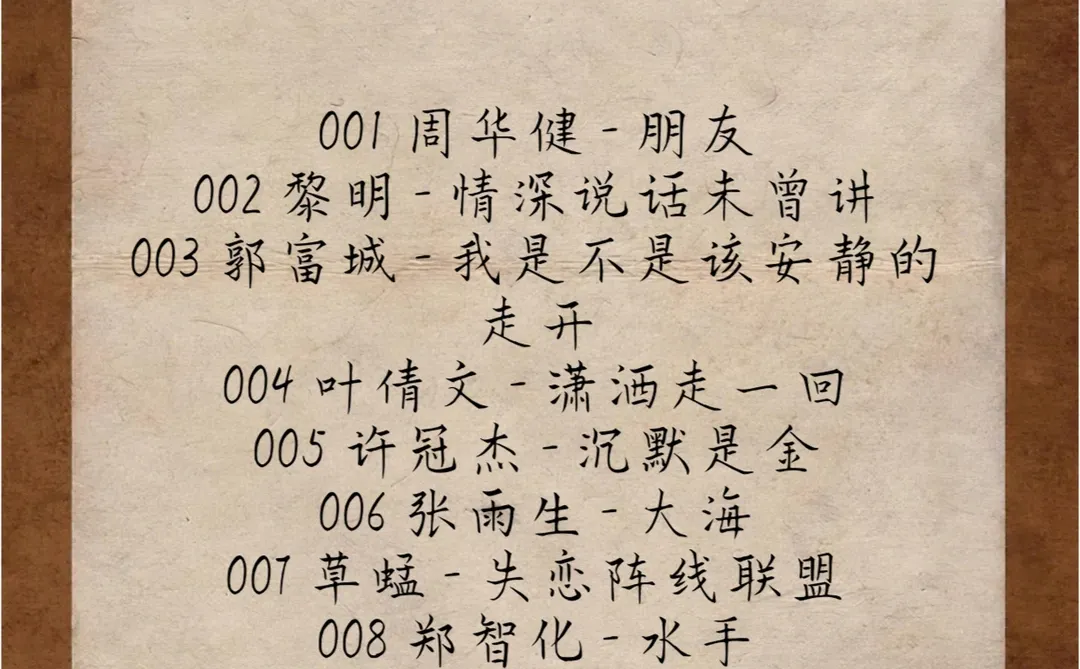 001 周华健 - 朋友
002 黎明 - 情深说话未曾讲
003 郭富城 - 我是不是该安静的
走开
004 叶倩文 - 潇洒走一回
005 许冠杰 - 沉默是金
006 张雨生 - 大海
007 草蜢 - 失恋阵线联盟
008 郑智化 - 水手